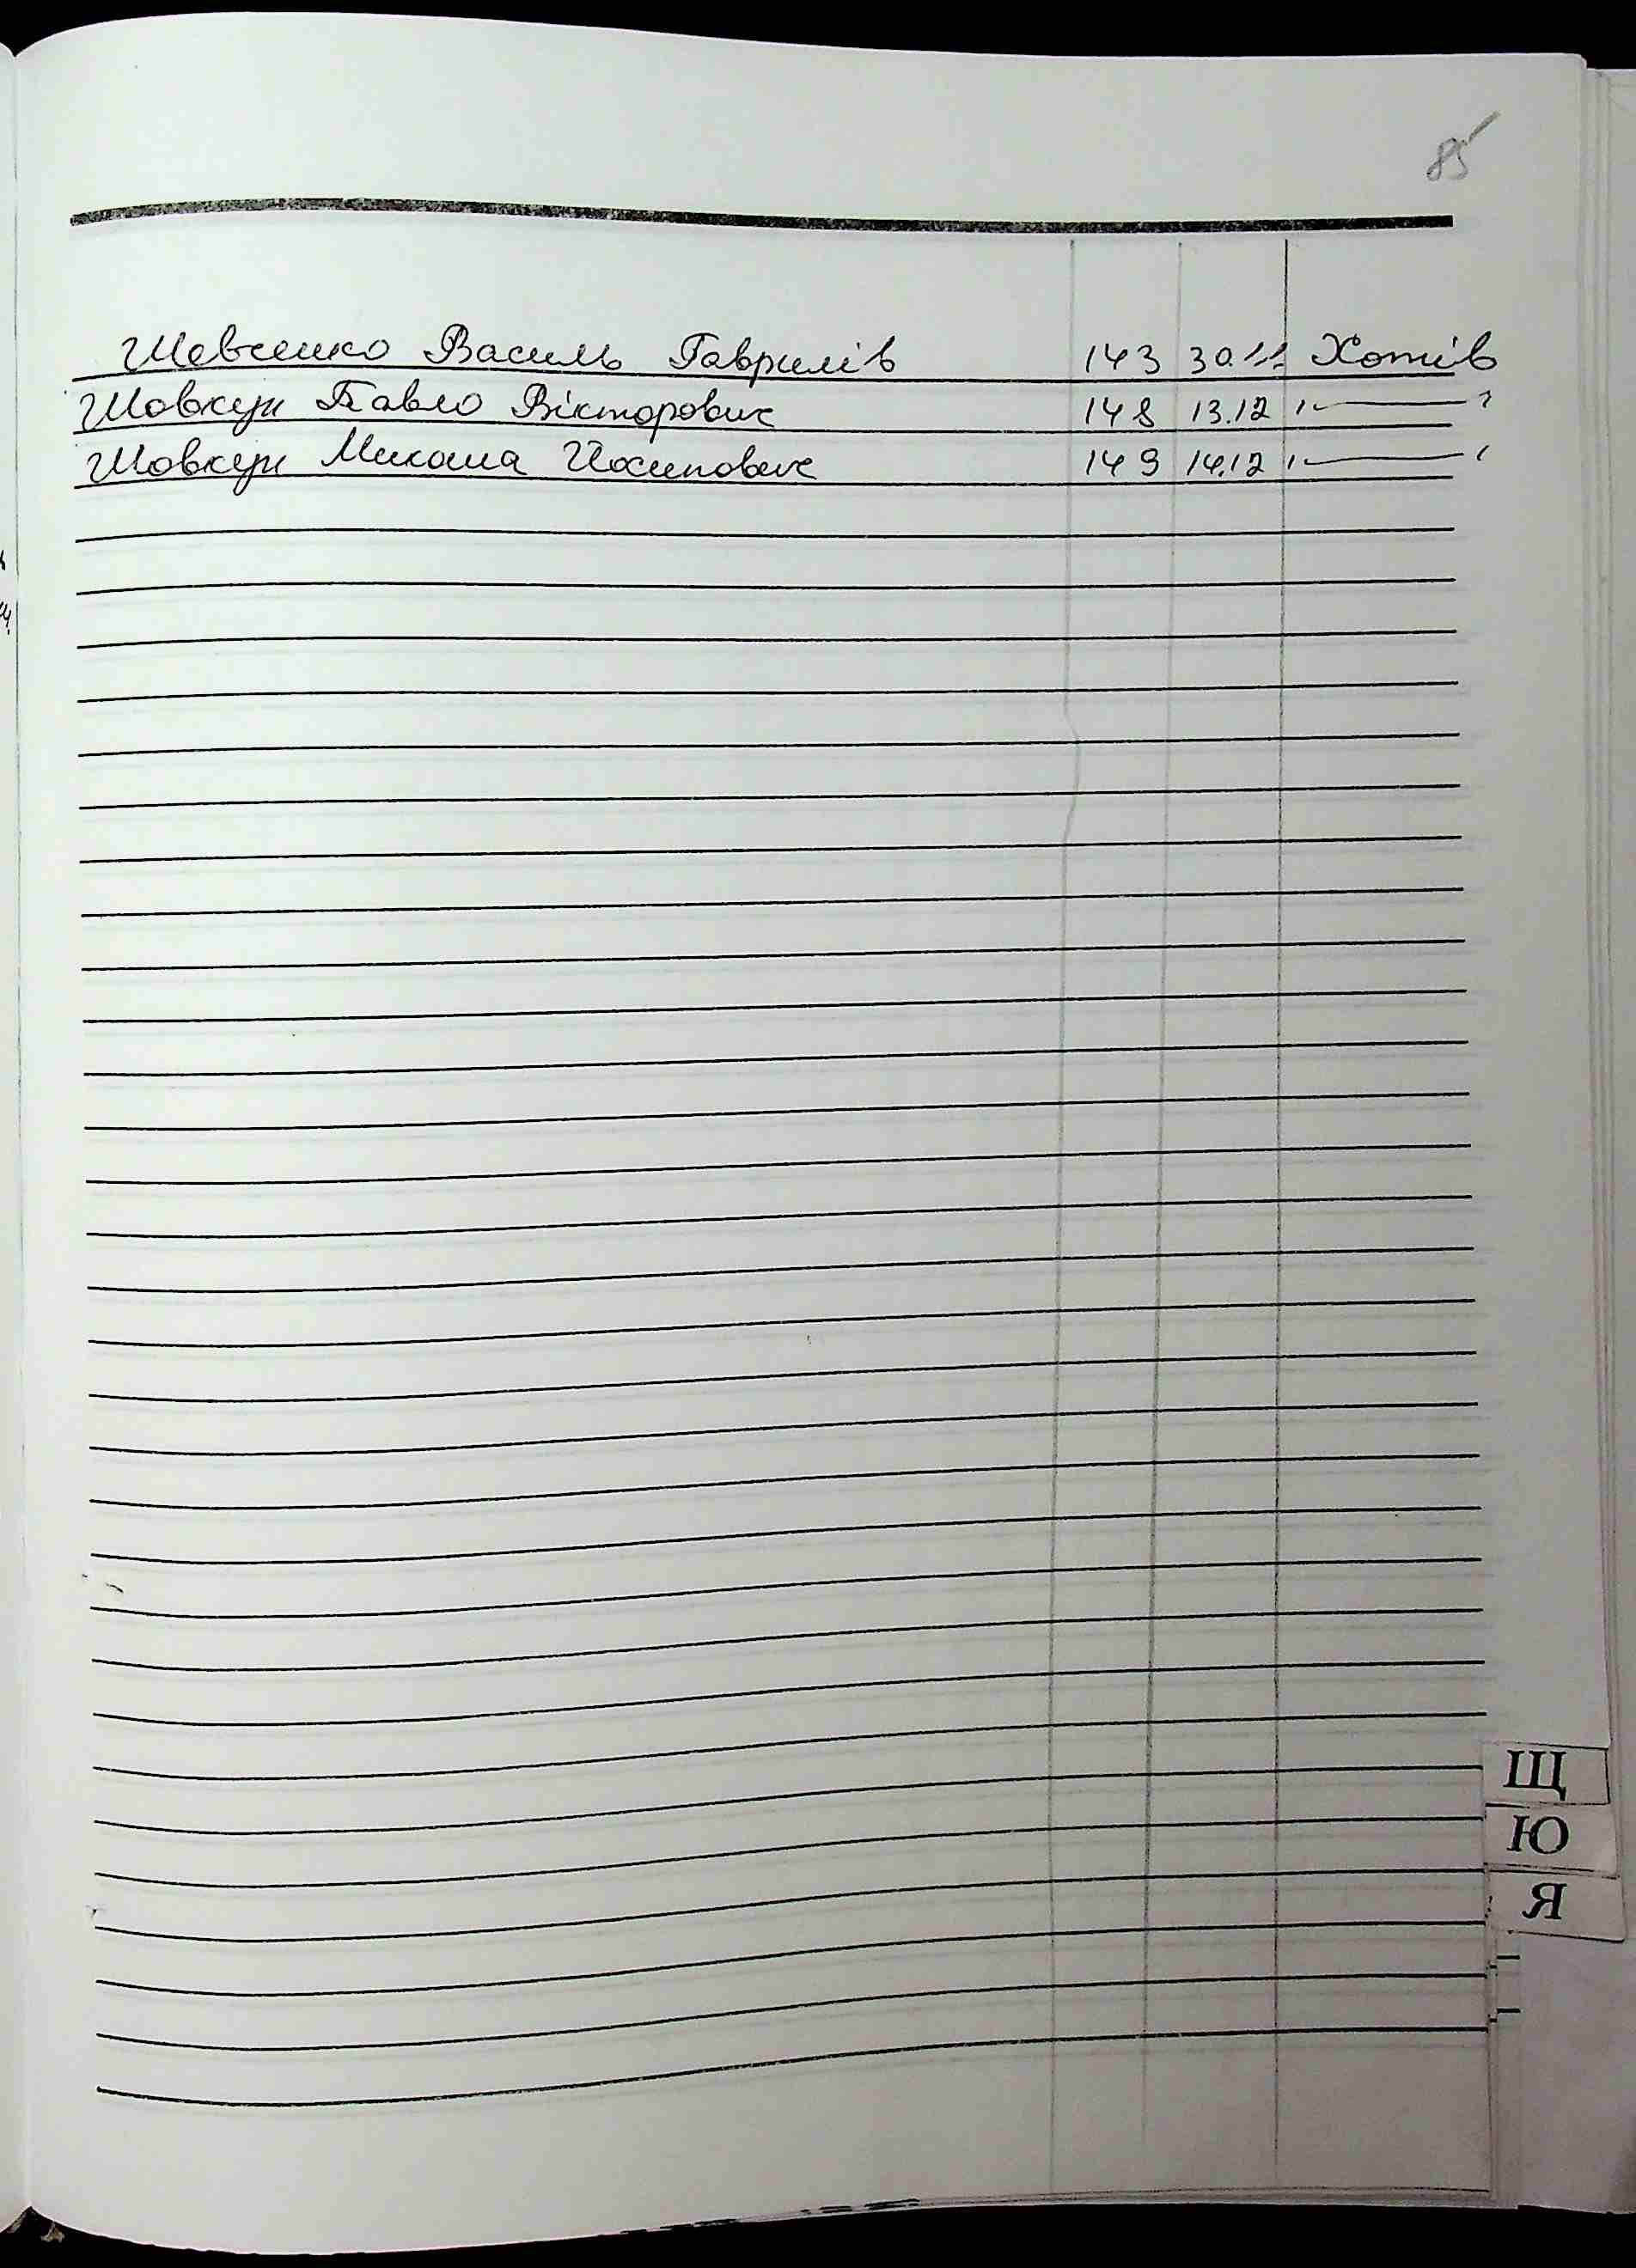 85
Шевченко Василь Гаврилів 143 30.11 Хотів
Шовкун Павло Вікторович 148 13.12 "—"
Шовкун Микола Йосипович 149 14.12 "—"
Щ
Ю
Я